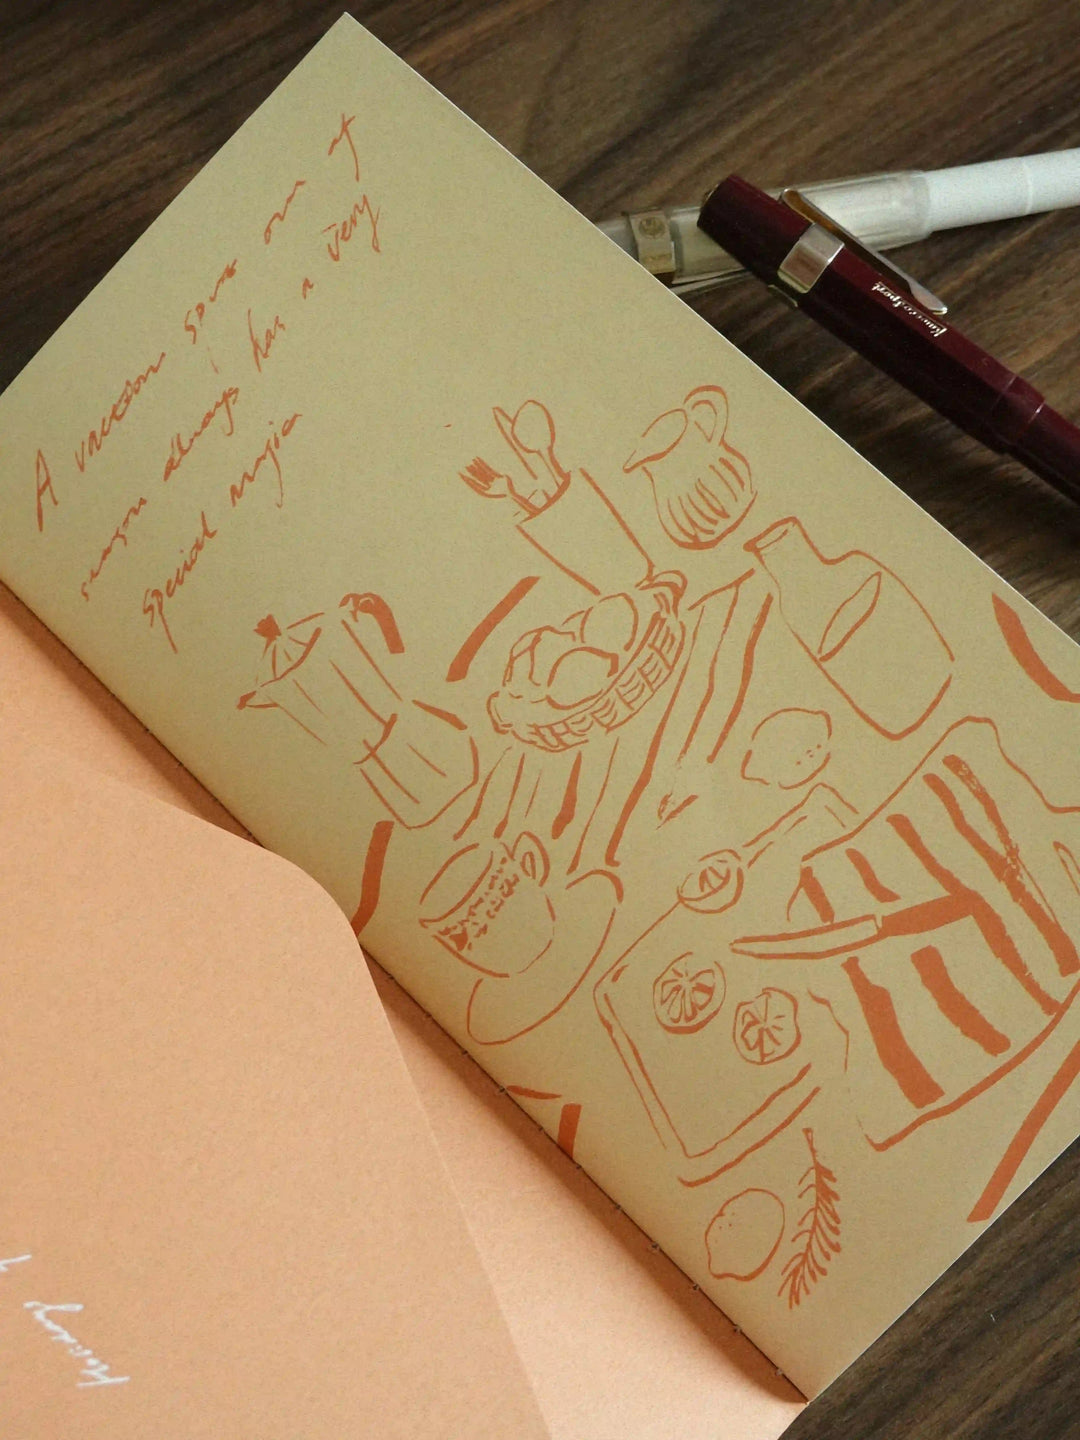 A vacation spent out of
season always has a very
special magic
Kaweco Sport